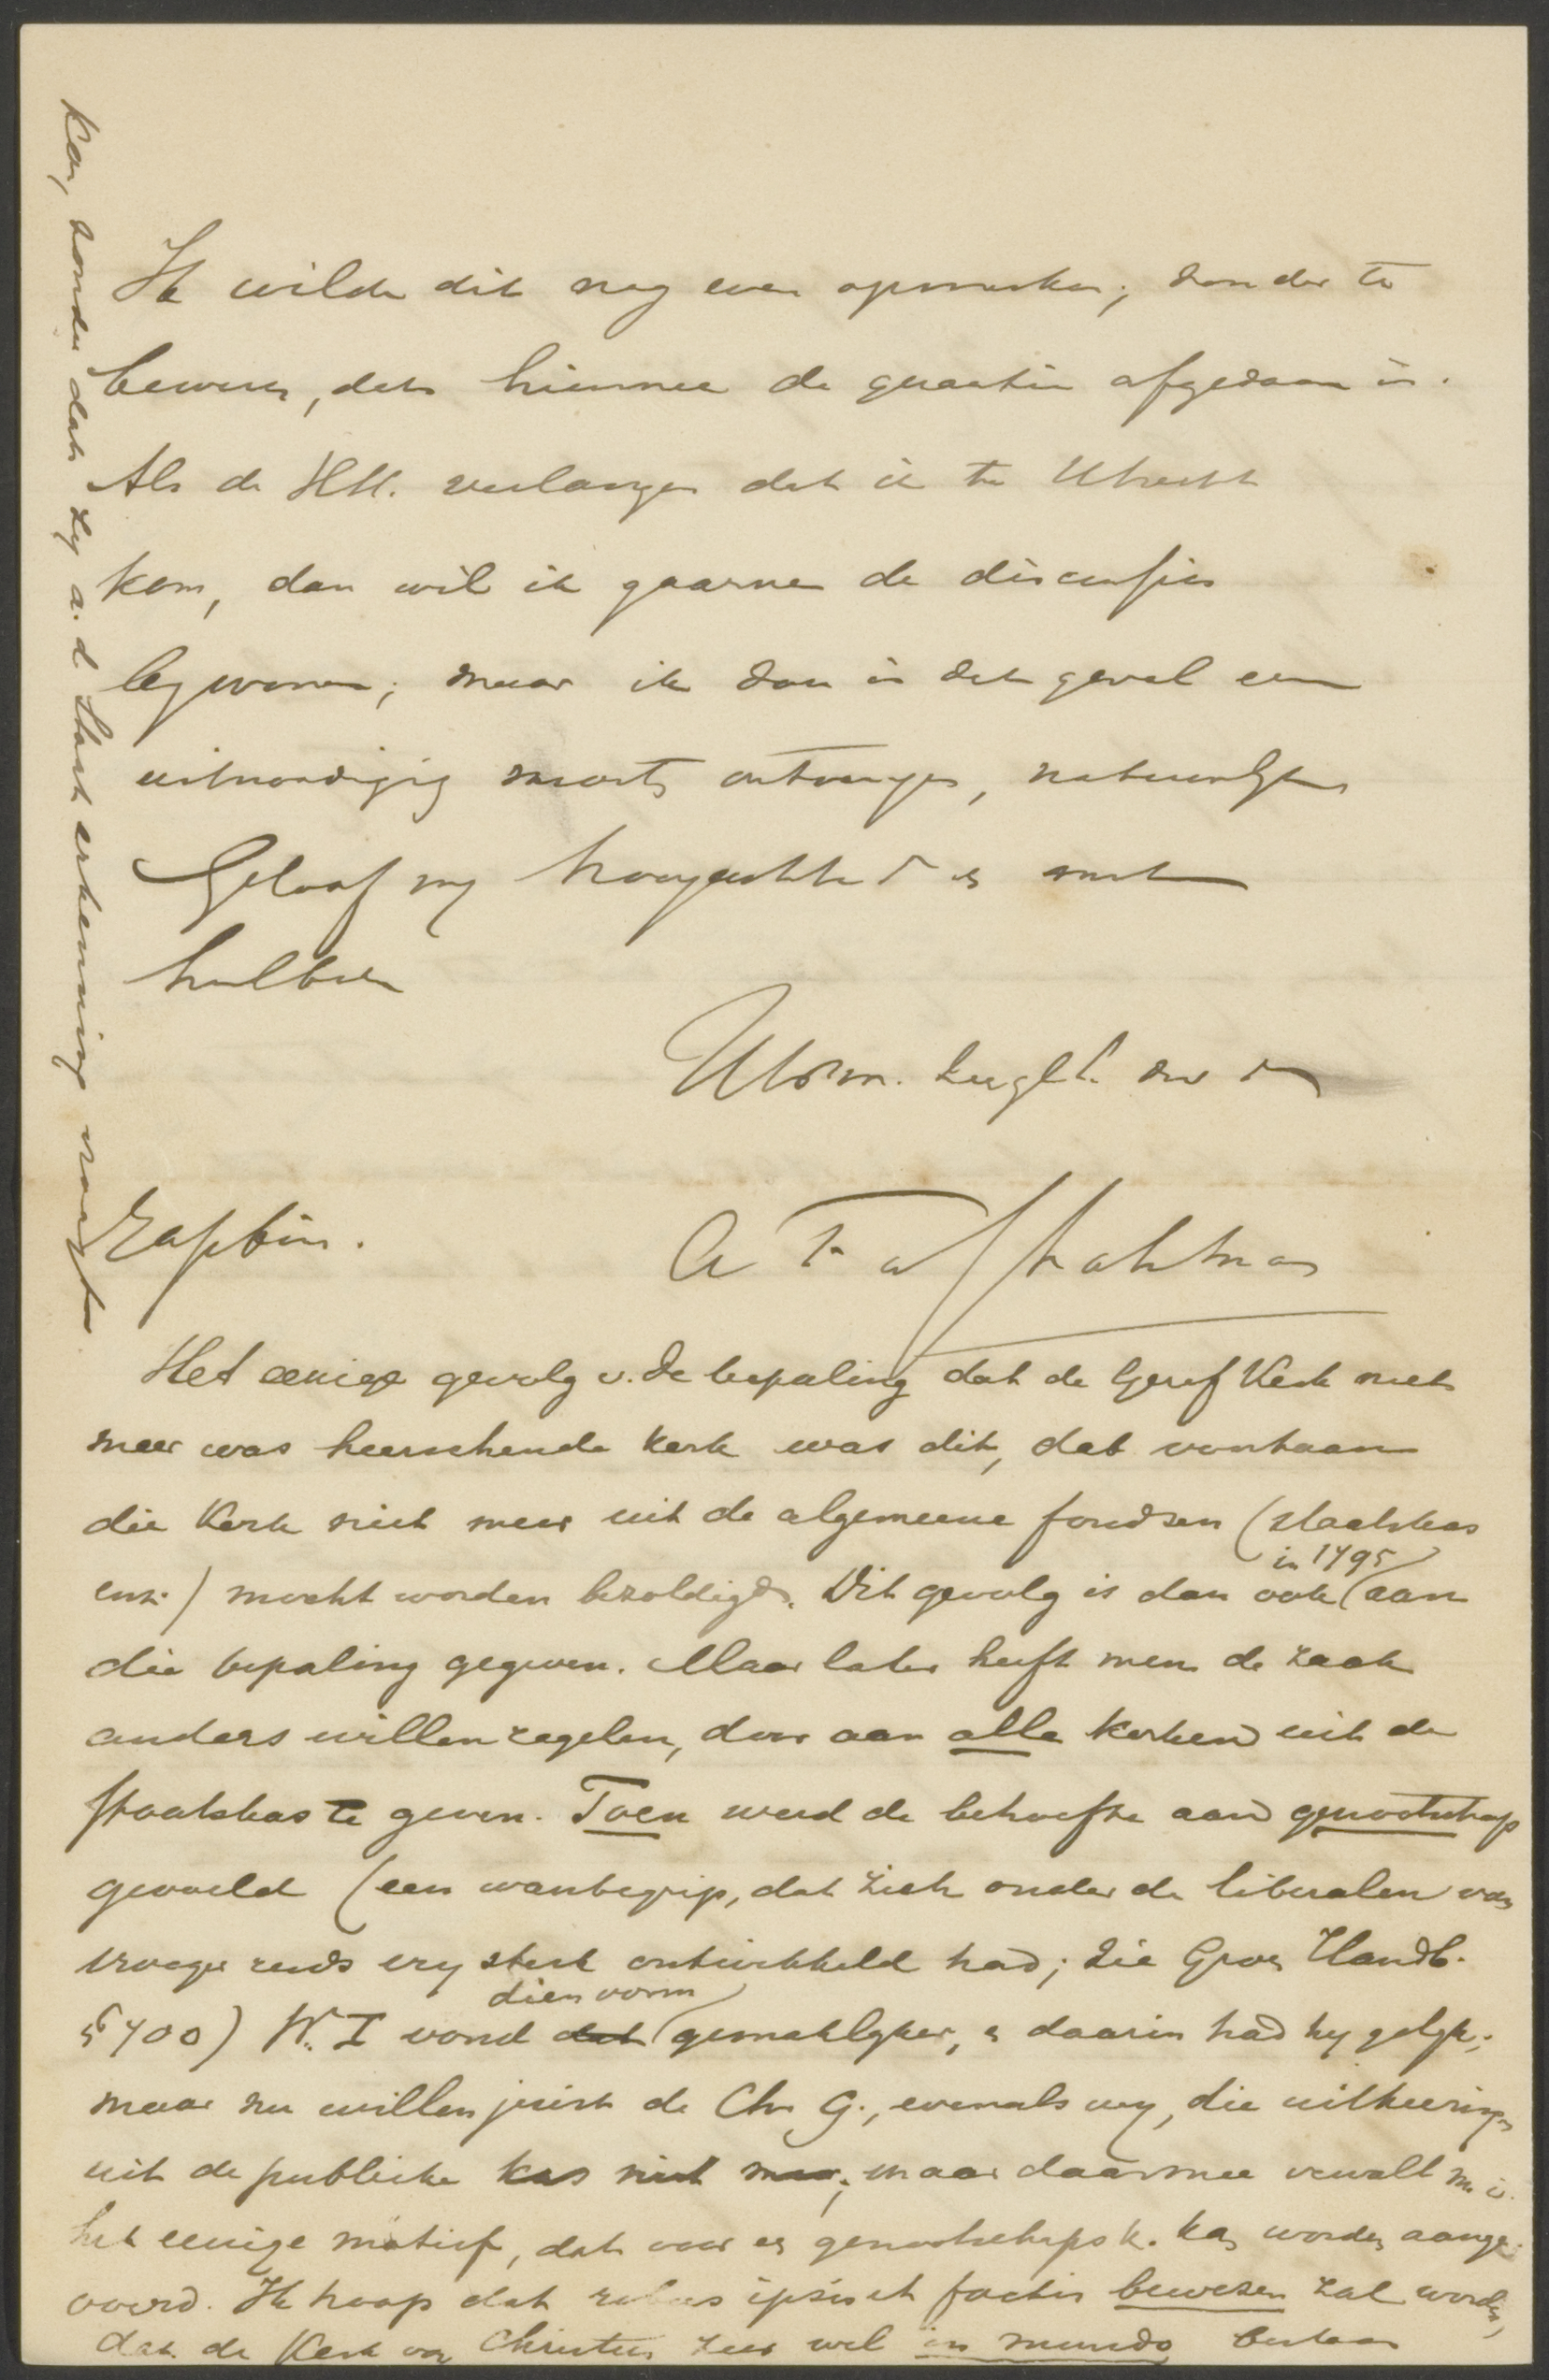 Ik wilde dit nog even opmerken, zonder te
beweren, dat hiermee de quaestie afgedaan is.
Als de HH. verlangen dat ik te Utrecht
kom, dan wil ik gaarne de discussies
bywonen; maar ik zou in dat geval een
uitnoodiging moeten ontvangen, natuurlyk
Geloof my hoogachtend en met
heilbede
UEDw.
Het eenige gevolg v. de bepaling dat de Geref Kerk niet
meer was heerschende kerk was dit, dat voortaan
die Kerk niet meer uit de algemeene fondsen (staatskas
enz.) mocht worden bezoldigd. Dit gevolg is dan ook in 1795 aan
die bepaling gegeven. Maar later heeft men de zaak
anders willen regelen, door aan alle kerken uit de
staatskas te geven. Toen werd de behoefte aan genootschap
gevoeld (een wanbegrip, dat zich onder de liberalen van
vroeger reeds erg sterk ontwikkeld had; zie Groen Handb.
§ 700) W. I vond dat dien vorm gemaklyker, en daarin had hy gelyk;
maar nu willen juist de Chr G., evenals wy, die uitkeeringen
uit de publieke kas niet meer; maar daarmee vervalt m. i.
het eenige motief, dat voor een genootschaps k. kan worden aange-
voerd. Ik hoop dat rebus ipsis et factis bewezen zal worden,
dat de Kerk van Christus zeer wel in mundo bestaan
kan, zonder dat zy a. d Staat erkenning vraagt